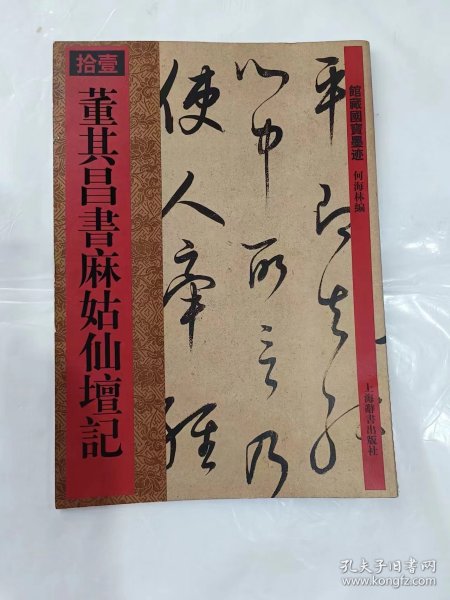 拾壹
董其昌書麻姑仙壇記
館藏國寶墨迹
何海林編
上海辭書出版社
平即知
心中所言乃
使人牽經
孔夫子旧书网
www.kongfz.com